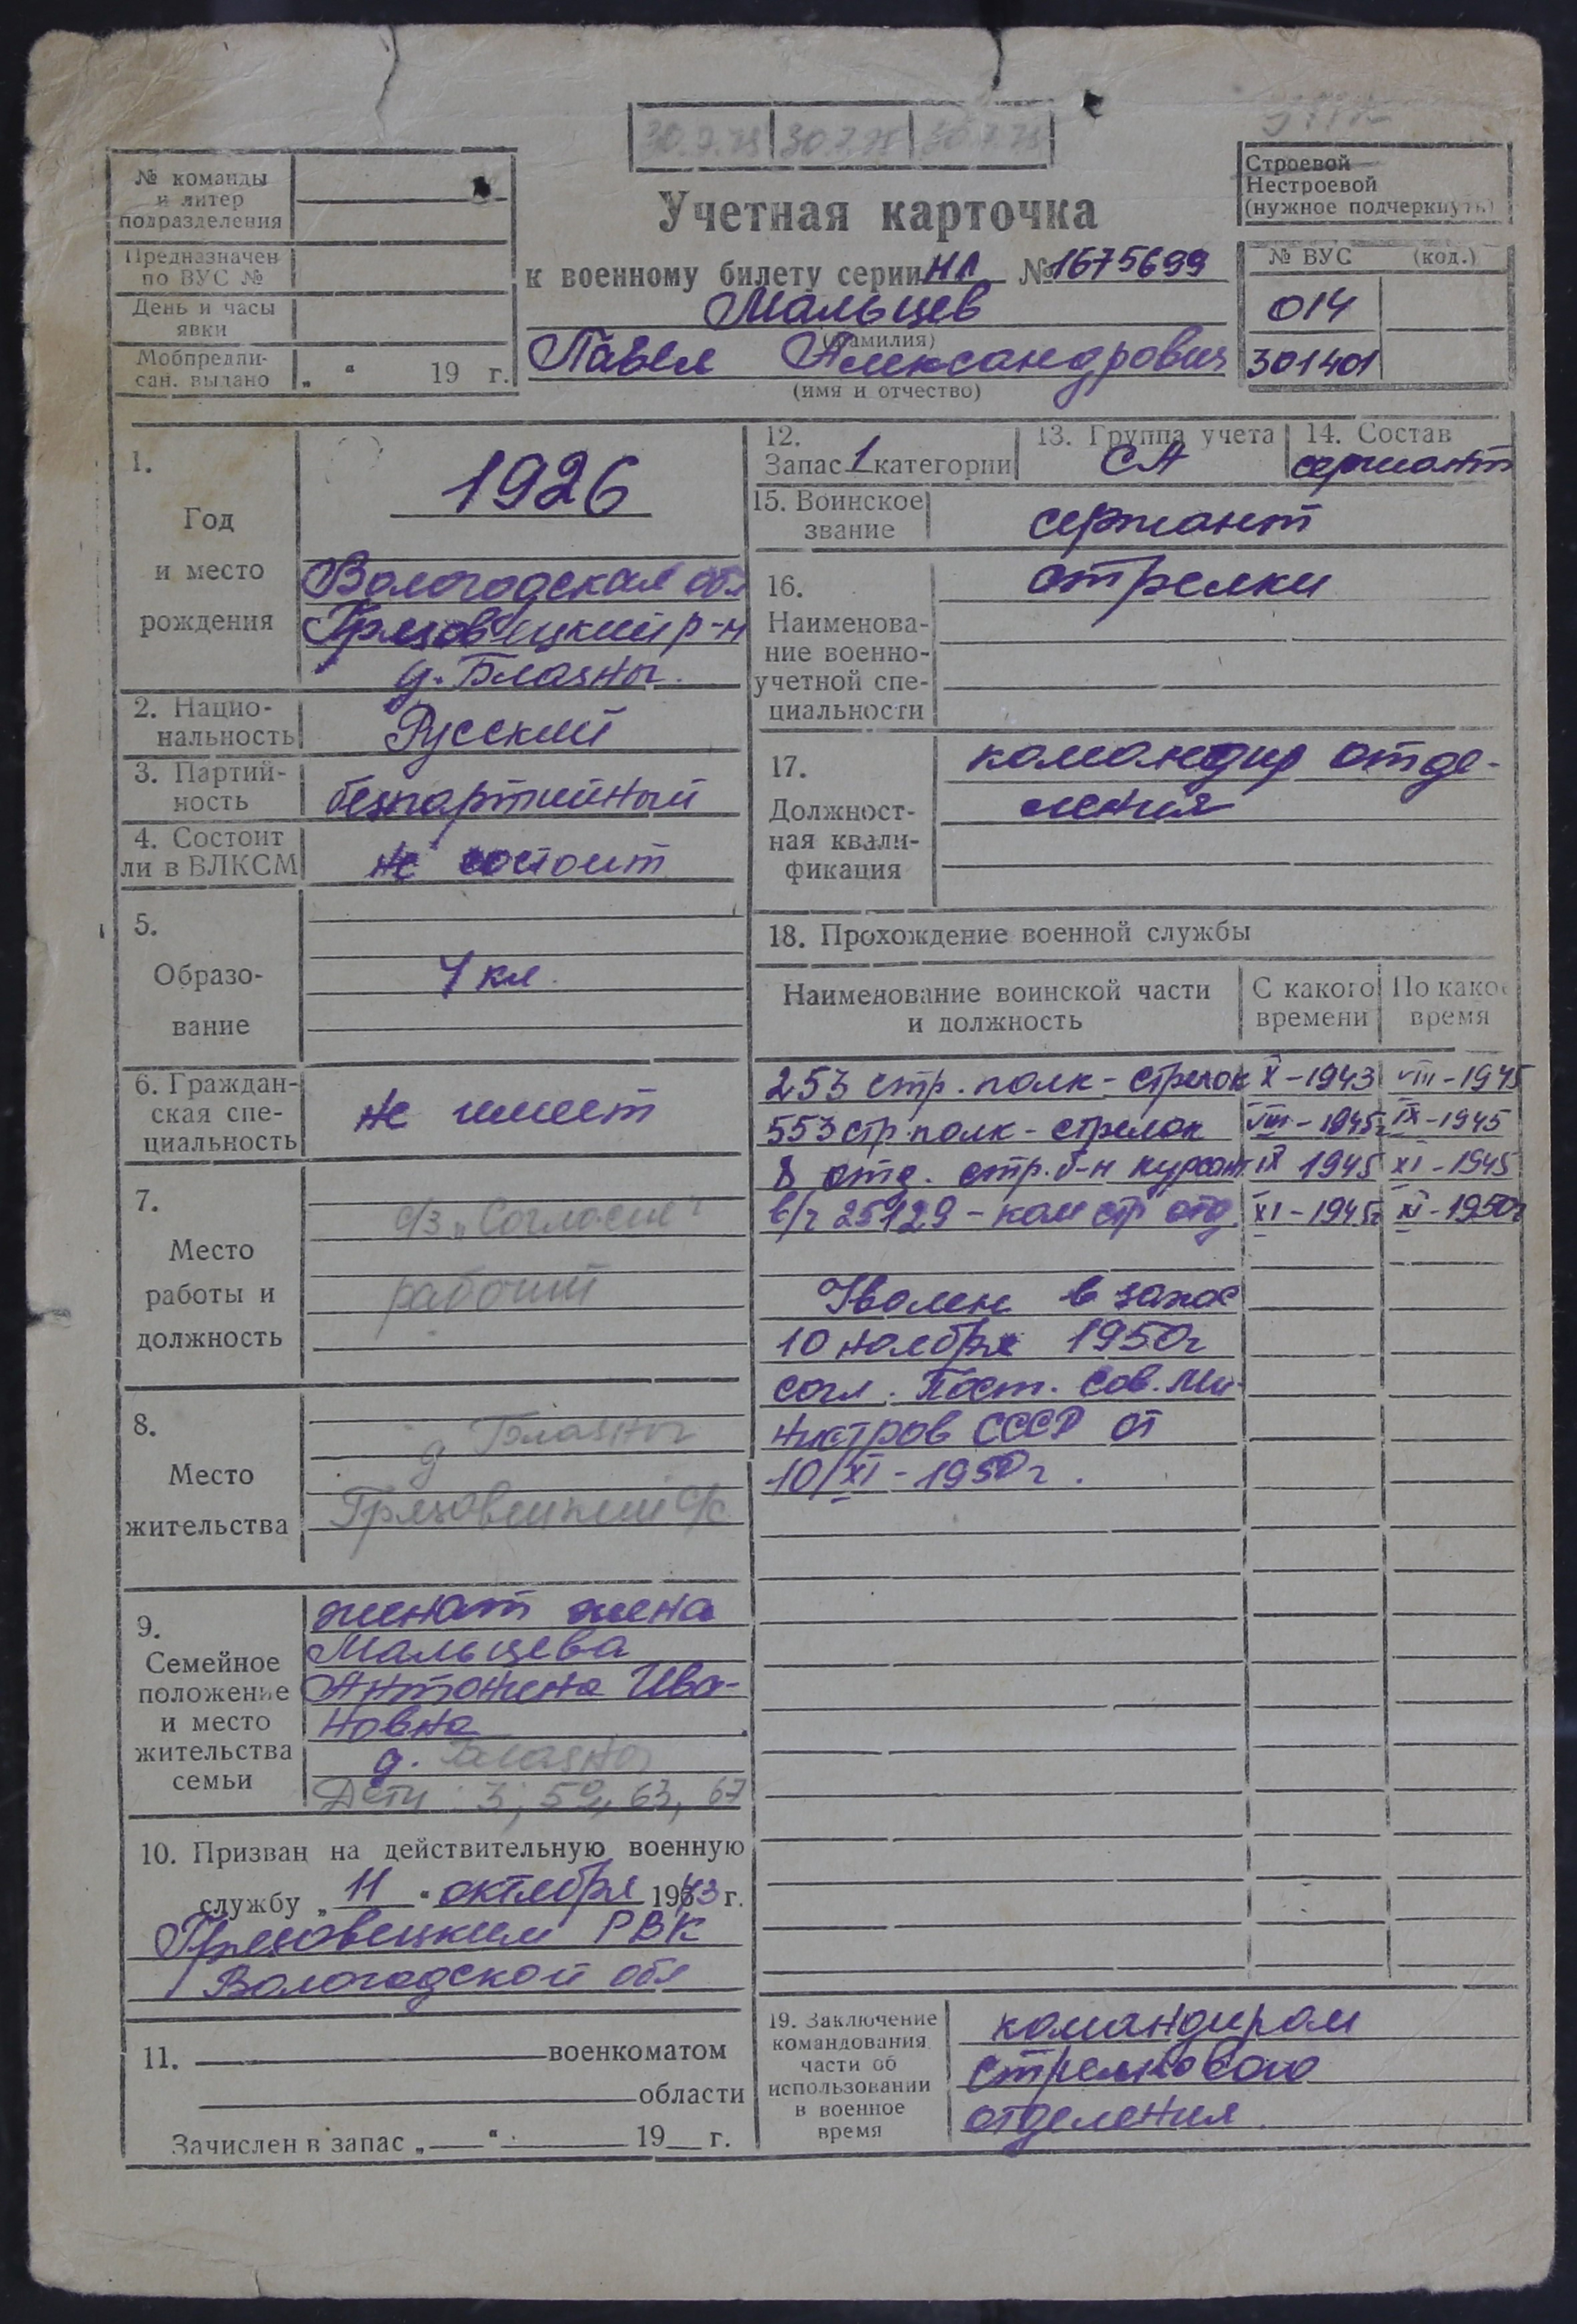 30.7.75 30.7.75 30.7.75
№ команды
и литер
подразделения
Предназначен
по ВУС №
День и часы
явки
Мобпредпи-
сан. выдано „ “ 19 г.
Учетная карточка
к военному билету серии НЛ № 1675699
Мальцев
(фамилия)
Павел Александрович
(имя и отчество)
Строевой
Нестроевой
(нужное подчеркнуть)
№ ВУС (код.)
014
301401
1.
Год
и место
рождения
1926
Вологодская обл
Грязовецкий р-н
д. Блазны.
2. Нацио-
нальность
Русский
3. Партий-
ность
безпартийный
4. Состоит
ли в ВЛКСМ
не состоит
5.
Образо-
вание
4 кл.
6. Граждан-
ская спе-
циальность
не имеет
7.
Место
работы и
должность
с/з „Согласие"
рабочий
8.
Место
жительства
д Блазны
Грязовецкий с/с
9.
Семейное
положение
и место
жительства
семьи
женат жена
Мальцева
Антонина Ива-
новна
д. Блазны
Дети: 3; 59, 63, 67
10. Призван на действительную военную
службу „ 11 “ октября 1943 г.
Грязовецким РВК
Вологодской обл
11. военкоматом
области
Зачислен в запас „ “ 19 г.
12.
Запас 1 категории
13. Группа учета
СА
14. Состав
сержант
15. Воинское
звание
сержант
16.
Наименова-
ние военно-
учетной спе-
циальности
стрелки
17.
Должност-
ная квали-
фикация
командир отде-
ления
18. Прохождение военной службы
Наименование воинской части
и должность
С какого
времени
По какое
время
253 стр. полк - стрелок X-1943 VIII-1945
553 стр. полк - стрелок VIII-1945г IX-1945
8 отд. стр. б-н курсант IX 1945 XI-1945
в/ч 25129 - ком стр отд. XI-1945г XI-1950г
Уволен в запас
10 ноября 1950г
согл. Пост. Сов. Ми-
нистров СССР от
10/XI-1950г.
19. Заключение
командования
части об
использовании
в военное
время
командиром
стрелкового
отделения